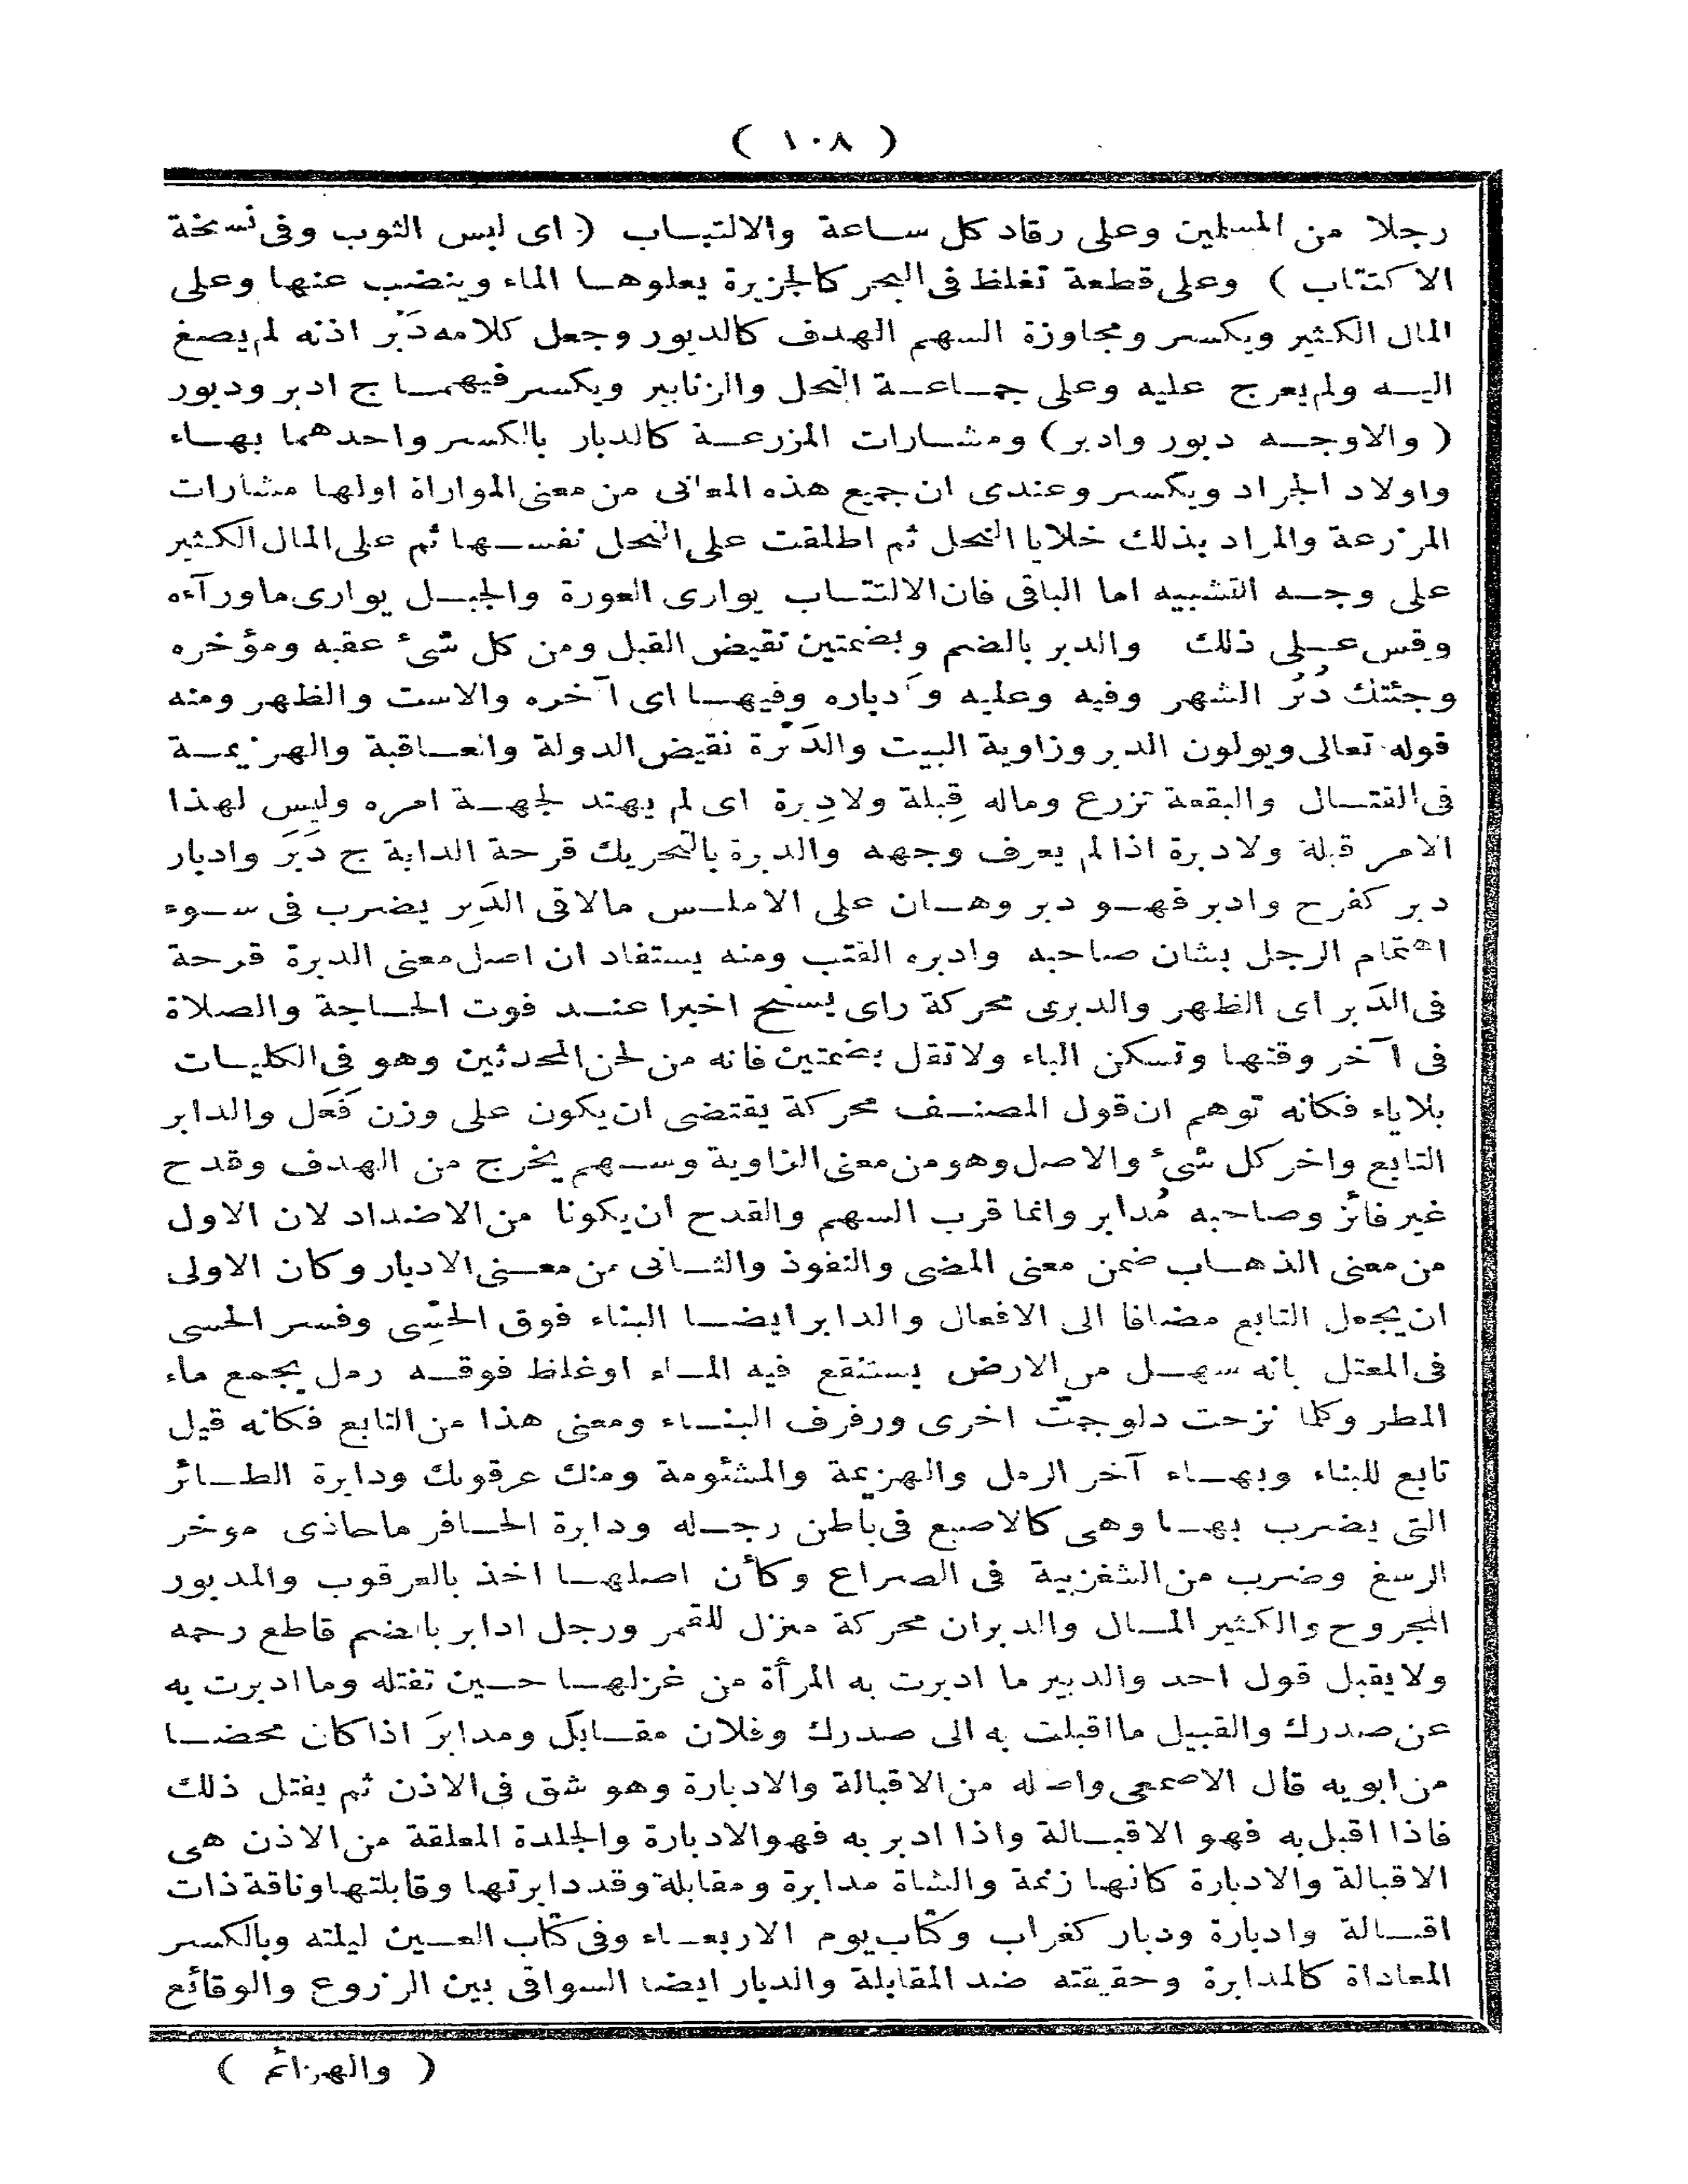 ( ١٠٨ )
رجلا من المسلمين وعلى رقاد كل ساعة والالتباب ( اى لبس الثوب وفى نسخة
الاكتتاب ) وعلى قطعة تغلظ فى البحر كالجزيرة يعلوها الماء وينضب عنها وعلى
المال الكثير ويكسر ومجاوزة السهم الهدف كالدبور وجعل كلامه دَبْر اذنه لم يصغ
اليه ولم يعرج عليه وعلى جماعة النحل والزنابير ويكسر فيهما ج ادبر ودبور
( والاوجه دبور وادبر ) ومشارات المزرعة كالدبار بالكسر واحدهما بهاء
واولاد الجراد ويكسر وعندى ان جميع هذه المعانى من معنى المواراة اولها مشارات
المزرعة والمراد بذلك خلايا النحل ثم اطلقت على النحل نفسها ثم على المال الكثير
على وجه التشبيه اما الباقى فان الالتباب يوارى العورة والجبل يوارى ماورآءه
وقس على ذلك والدبر بالضم وبضمتين نقيض القبل ومن كل شئ عقبه ومؤخره
وجئتك دُبُر الشهر وفيه وعليه وأدباره وفيها اى آخره والاست والظهر ومنه
قوله تعالى ويولون الدبر وزاوية البيت والدَبْرة نقيض الدولة والعاقبة والهزيمة
فى القتال والبقعة تزرع وماله قِبلة ولادِبرة اى لم يهتد لجهة امره وليس لهذا
الامر قبلة ولادبرة اذا لم يعرف وجهه والدبرة بالتحريك قرحة الدابة ج دَبَر وادبار
دبر كفرح وادبر فهو دبر وهان على الاملس مالاقى الدَبِر يضرب فى سوء
اهتمام الرجل بشان صاحبه وادبره القتب ومنه يستفاد ان اصل معنى الدبرة قرحة
فى الدَبر اى الظهر والدبرى محركة راى يسنح اخيرا عند فوت الحاجة والصلاة
فى آخر وقتها وتسكن الباء ولاتقل بضمتين فانه من لحن المحدثين وهو فى الكليات
بلاياء فكانه توهم ان قول المصنف محركة يقتضى ان يكون على وزن فَعَل والدابر
التابع واخر كل شئ والاصل وهو من معنى الزاوية وسهم يخرج من الهدف وقدح
غير فائز وصاحبه مُدابر وانما قرب السهم والقدح أن يكونا من الاضداد لان الاول
من معنى الذهاب ضمن معنى المضى والنفوذ والثانى من معنى الادبار وكان الاولى
ان يجعل التابع مضافا الى الافعال والدابر ايضا البناء فوق الحَسْى وفسر الحسى
فى المعتل بانه سهل من الارض يستنقع فيه الماء او غلظ فوقه رمل يجمع ماء
المطر وكلما نزحت دلو جمّت اخرى ورفرف البناء ومعنى هذا من التابع فكانه قيل
تابع للبناء وبهاء آخر الرمل والهزيمة والمشئومة ومنك عرقوبك ودابرة الطائر
التى يضرب بها وهى كالاصبع فى باطن رجله ودابرة الحافر ماحاذى موخر
الرسغ وضرب من الشغزبية فى الصراع وكأن اصلها اخذ بالعرقوب والمدبور
المجروح والكثير المال والدبران محركة منزل للقمر ورجل ادابر بالضم قاطع رحمه
ولايقبل قول احد والدبير ما ادبرت به المرأة من غزلها حين تفتله وما ادبرت به
عن صدرك والقبيل ما اقبلت به الى صدرك وفلان مقابَل ومدابَر اذا كان محضا
من ابويه قال الاصمعى واصله من الاقبالة والادبارة وهو شق فى الاذن ثم يفتل ذلك
فاذا اقبل به فهو الاقبالة واذا ادبر به فهو الادبارة والجلدة المعلقة من الاذن هى
الاقبالة والادبارة كانها زنمة والشاة مدابرة ومقابلة وقد دابرتها وقابلتها وناقة ذات
اقبالة وادبارة ودبار كغراب وكتاب يوم الاربعاء وفى كتاب العين ليلته وبالكسر
المعاداة كالمدابرة وحقيقته ضد المقابلة والدبار ايضا السواقى بين الزروع والوقائع
( والهزائم )